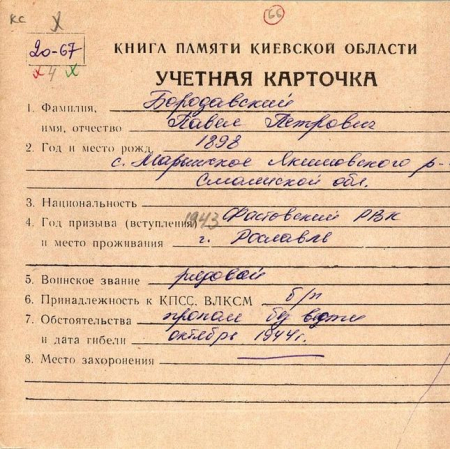 кс х 66
20-67
х 4 х
КНИГА ПАМЯТИ КИЕВСКОЙ ОБЛАСТИ
УЧЕТНАЯ КАРТОЧКА
1. Фамилия, Бородавский
имя, отчество Павел Петрович
2. Год и место рожд. 1898
с. Марьинское р-
Смолинской обл.
3. Национальность
4. Год призыва (вступления) 1943 Фастовский РВК
и место проживания г. Рославль
5. Воинское звание рядовой
6. Принадлежность к КПСС, ВЛКСМ б/п
7. Обстоятельства пропал без вести
и дата гибели октябрь 1944г.
8. Место захоронения